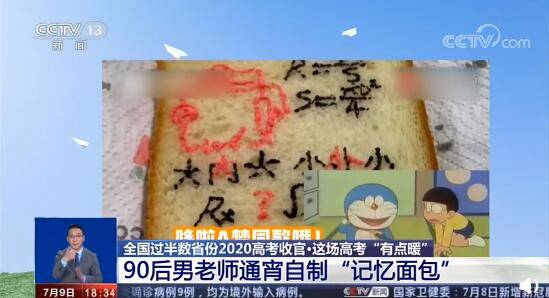 CCTV 13
新闻
CCTV.com
R=
S=
大内大 小外小
Rx ?
哆啦A梦同款哦!
全国过半数省份2020高考收官·这场高考“有点暖”
90后男老师通宵自制“记忆面包”
7月9日 18:34
确诊病例9例，均为境外输入病例。
CCTV 新闻
国家卫健委：7月8日新增